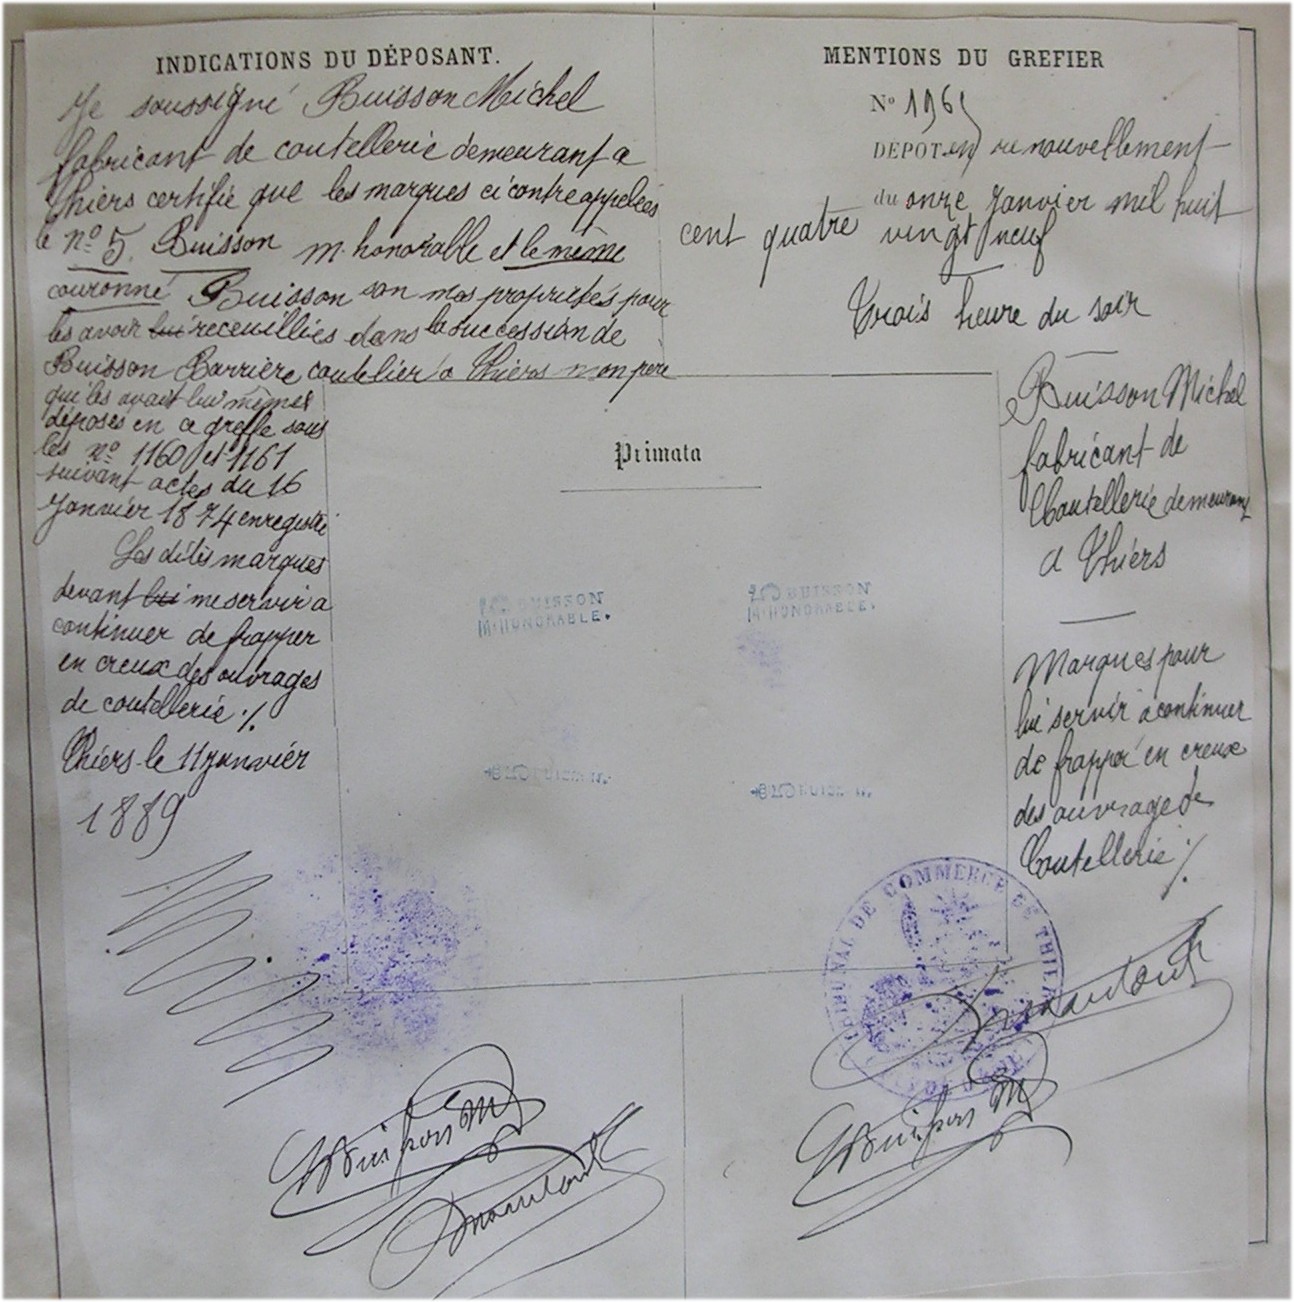 INDICATIONS DU DÉPOSANT.
Je soussigné Buisson Michel
fabricant de coutellerie demeurant a
Thiers certifie que les marques ci contre appelées
le nº 5. Buisson m. honorable et le même
couronné Buisson son mas propriétés pour
les avoir lui receuillies dans la succession de
Buisson Barrière coutelier a Thiers mon père
qui les avait lui mêmes
déposés en ce greffe sous
les nº 1160 et 1161
suivant actes du 16
Janvier 1874 enregistré
Les dites marques
devant lui me servir a
continuer de frapper
en creux des ouvrages
de coutellerie ./.
Thiers le 11 janvier
1889
MENTIONS DU GREFIER
Nº 196
DÉPOT en renouvellement
du onze Janvier mil huit
cent quatre vingt neuf
Trois heure du soir
Primata
Buisson Michel
fabricant de
Coutellerie demeurant
a Thiers
Marques pour
lui servir a continuer
de frapper en creux
des ouvrage de
Coutellerie ./.
BUISSON
M. HONORABLE.
BUISSON
M. HONORABLE.
TRIBUNAL DE COMMERCE DE THIERS
PUY DE DOME
Buisson M
Buisson M